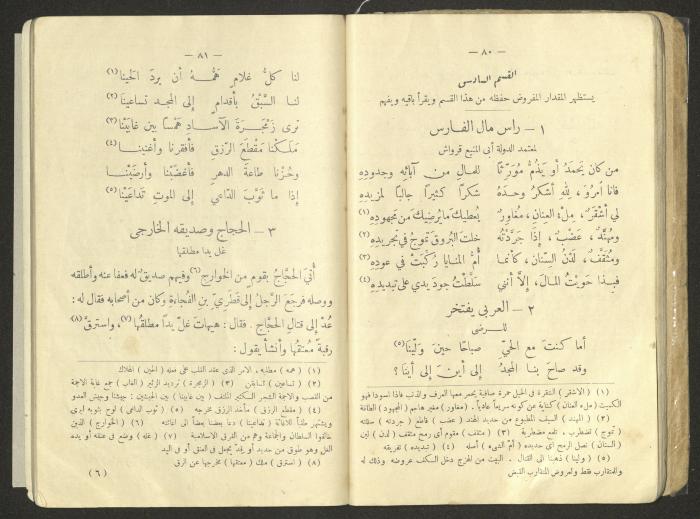 — ٨٠ —
القسم السادس
يستظهر المقدار المفروض حفظه من هذا القسم ويقرأ باقيه ويفهم
١ — راس مال الفارس
لمعتمد الدولة أبى المنيع قرواش
من كان يَحمَدُ أو يَذُمُّ مُوَرِّثا للمالِ من آبائِهِ وجدودِهِ
فانا امرُوٌ، للهِ أشكرُ وحدَهُ شكرًا كثيرًا جالبًا لمزيدِهِ
لي أشقرٌ، مِلءُ العنانِ، مُغاورٌ يُعطيكَ ما يُرضيكَ من مجهودِهِ (١)
ومُهنَّدٌ، عَضْبٌ، إذا جَرَّدْتَهُ خلتَ البُروقَ تَموجُ في تجريدِهِ (٢)
ومُثقَّفٌ، لَدْنُ السِّنانِ، كأنما أُمُّ المنايا رُكِّبَتْ في عودِهِ (٣)
فبِذا حَوَيْتُ المالَ، إلّا أنني سَلَّطْتُ جودَ يدي على تبديدِهِ (٤)
٢ — العربي يفتخر
للرضى
أما كنتَ مع الحيِّ صباحًا حينَ وَلّينا (٥)
وقد صاحَ بنا المجدُ إلى أينَ إلى أينا ؟
(١) ( الاشقر ) الشقرة في الخيل حمرة صافية يحمر معها العرف والذنب فاذا اسودا فهو
الكميت ( ملء العنان ) كناية عن كونه سريعاً عادياً . ( مغاور ) مغير هاجم ( المجهود ) الطاقة
(٢) ( المهند ) السيف المطبوع من حديد الهند ( عضب ) قاطع ( جردته ) سللته
( تموج ) تضطرب . تلمع مضطربة (٣) ( مثقف ) مقوم أى رمح مثقف ( لدن ) لين
( السنان ) نصل الرمح أى حديده ( أم الشىء ) أصله (٤) ( تبديده ) تفريقه
(٥) ( ولينا ) ذهبنا الى القتال . البيت من الهزج دخل الكف عروضه وذلك له
والمتقارب فقط ولعروض المتقارب القبض
— ٨١ —
لنا كلُّ غلامٍ هَمُّهُ أن يرِدَ الحَينا (١)
لنا السَّبْقُ بأقدامٍ إلى المجدِ تساعَينا (٢)
ترى زَمْجَرَةَ الآسادِ هَمْسًا بين غابَيْنا (٣)
مَلَكنا مَقْطَعَ الرِّزقِ فأفقرنا وأغنينا (٤)
وحُزْنا طاعةَ الدهرِ فأغضَبْنا وأرضَيْنا
إذا ما ثَوَّبَ الدّاعي إلى الموتِ تَداعَيْنا (٥)
٣ — الحجاج وصديقه الخارجى
غل يدا مطلقها
أُتيَ الحَجّاجُ بقومٍ من الخوارجِ (٦) وفيهم صديقٌ له فعفا عنه وأطلقه
ووصله فرجَعَ الرَّجلُ إلى قَطَريِّ بنِ الفُجاءةِ وكان من أصحابه فقال له :
عُدْ إلى قتالِ الحَجّاجِ . فقال : هيهات غلَّ يداً مطلقُها (٧)، واسترقَّ (٨)
رقبةً مُعتِقُها وأنشأ يقول :
(١) ( همه ) مطلبه ، الامر الذى عقد القلب على فعله ( الحين ) الهلاك
(٢) ( تساعين ) تسابقن (٣) ( الزمجرة ) ترديد الزئير ( الغاب ) جمع غابة الاجمة
من القصب والاجمة الشجر الكثير الملتف ( بين غابينا ) بين الجيشين : جيشنا وجيش العدو
(٤) ( مقطع الرزق ) مأخذ الرزق مخرجه (٥) ( ثوب الداعى ) لوح بثوبه ليرى
ويشتهر طلباً للاغاثة ( تداعينا ) دعا بعضنا بعضاً الى اغاثته (٦) ( الخوارج ) الذين
خالفوا السلطان والجماعة وهم من الفرق الاسلامية (٧) ( غله ) وضع فى عنقه أو يده
الغل وهو طوق من حديد أو قِدّ يجعل فى العنق أو فى اليد
(٨) ( استرق ) ملك ( معتقها ) مخرجها عن الرق
(٦)